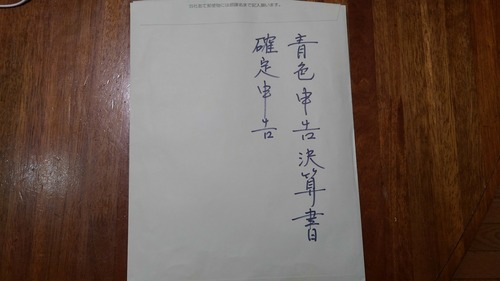 青色申告決算書
確定申告